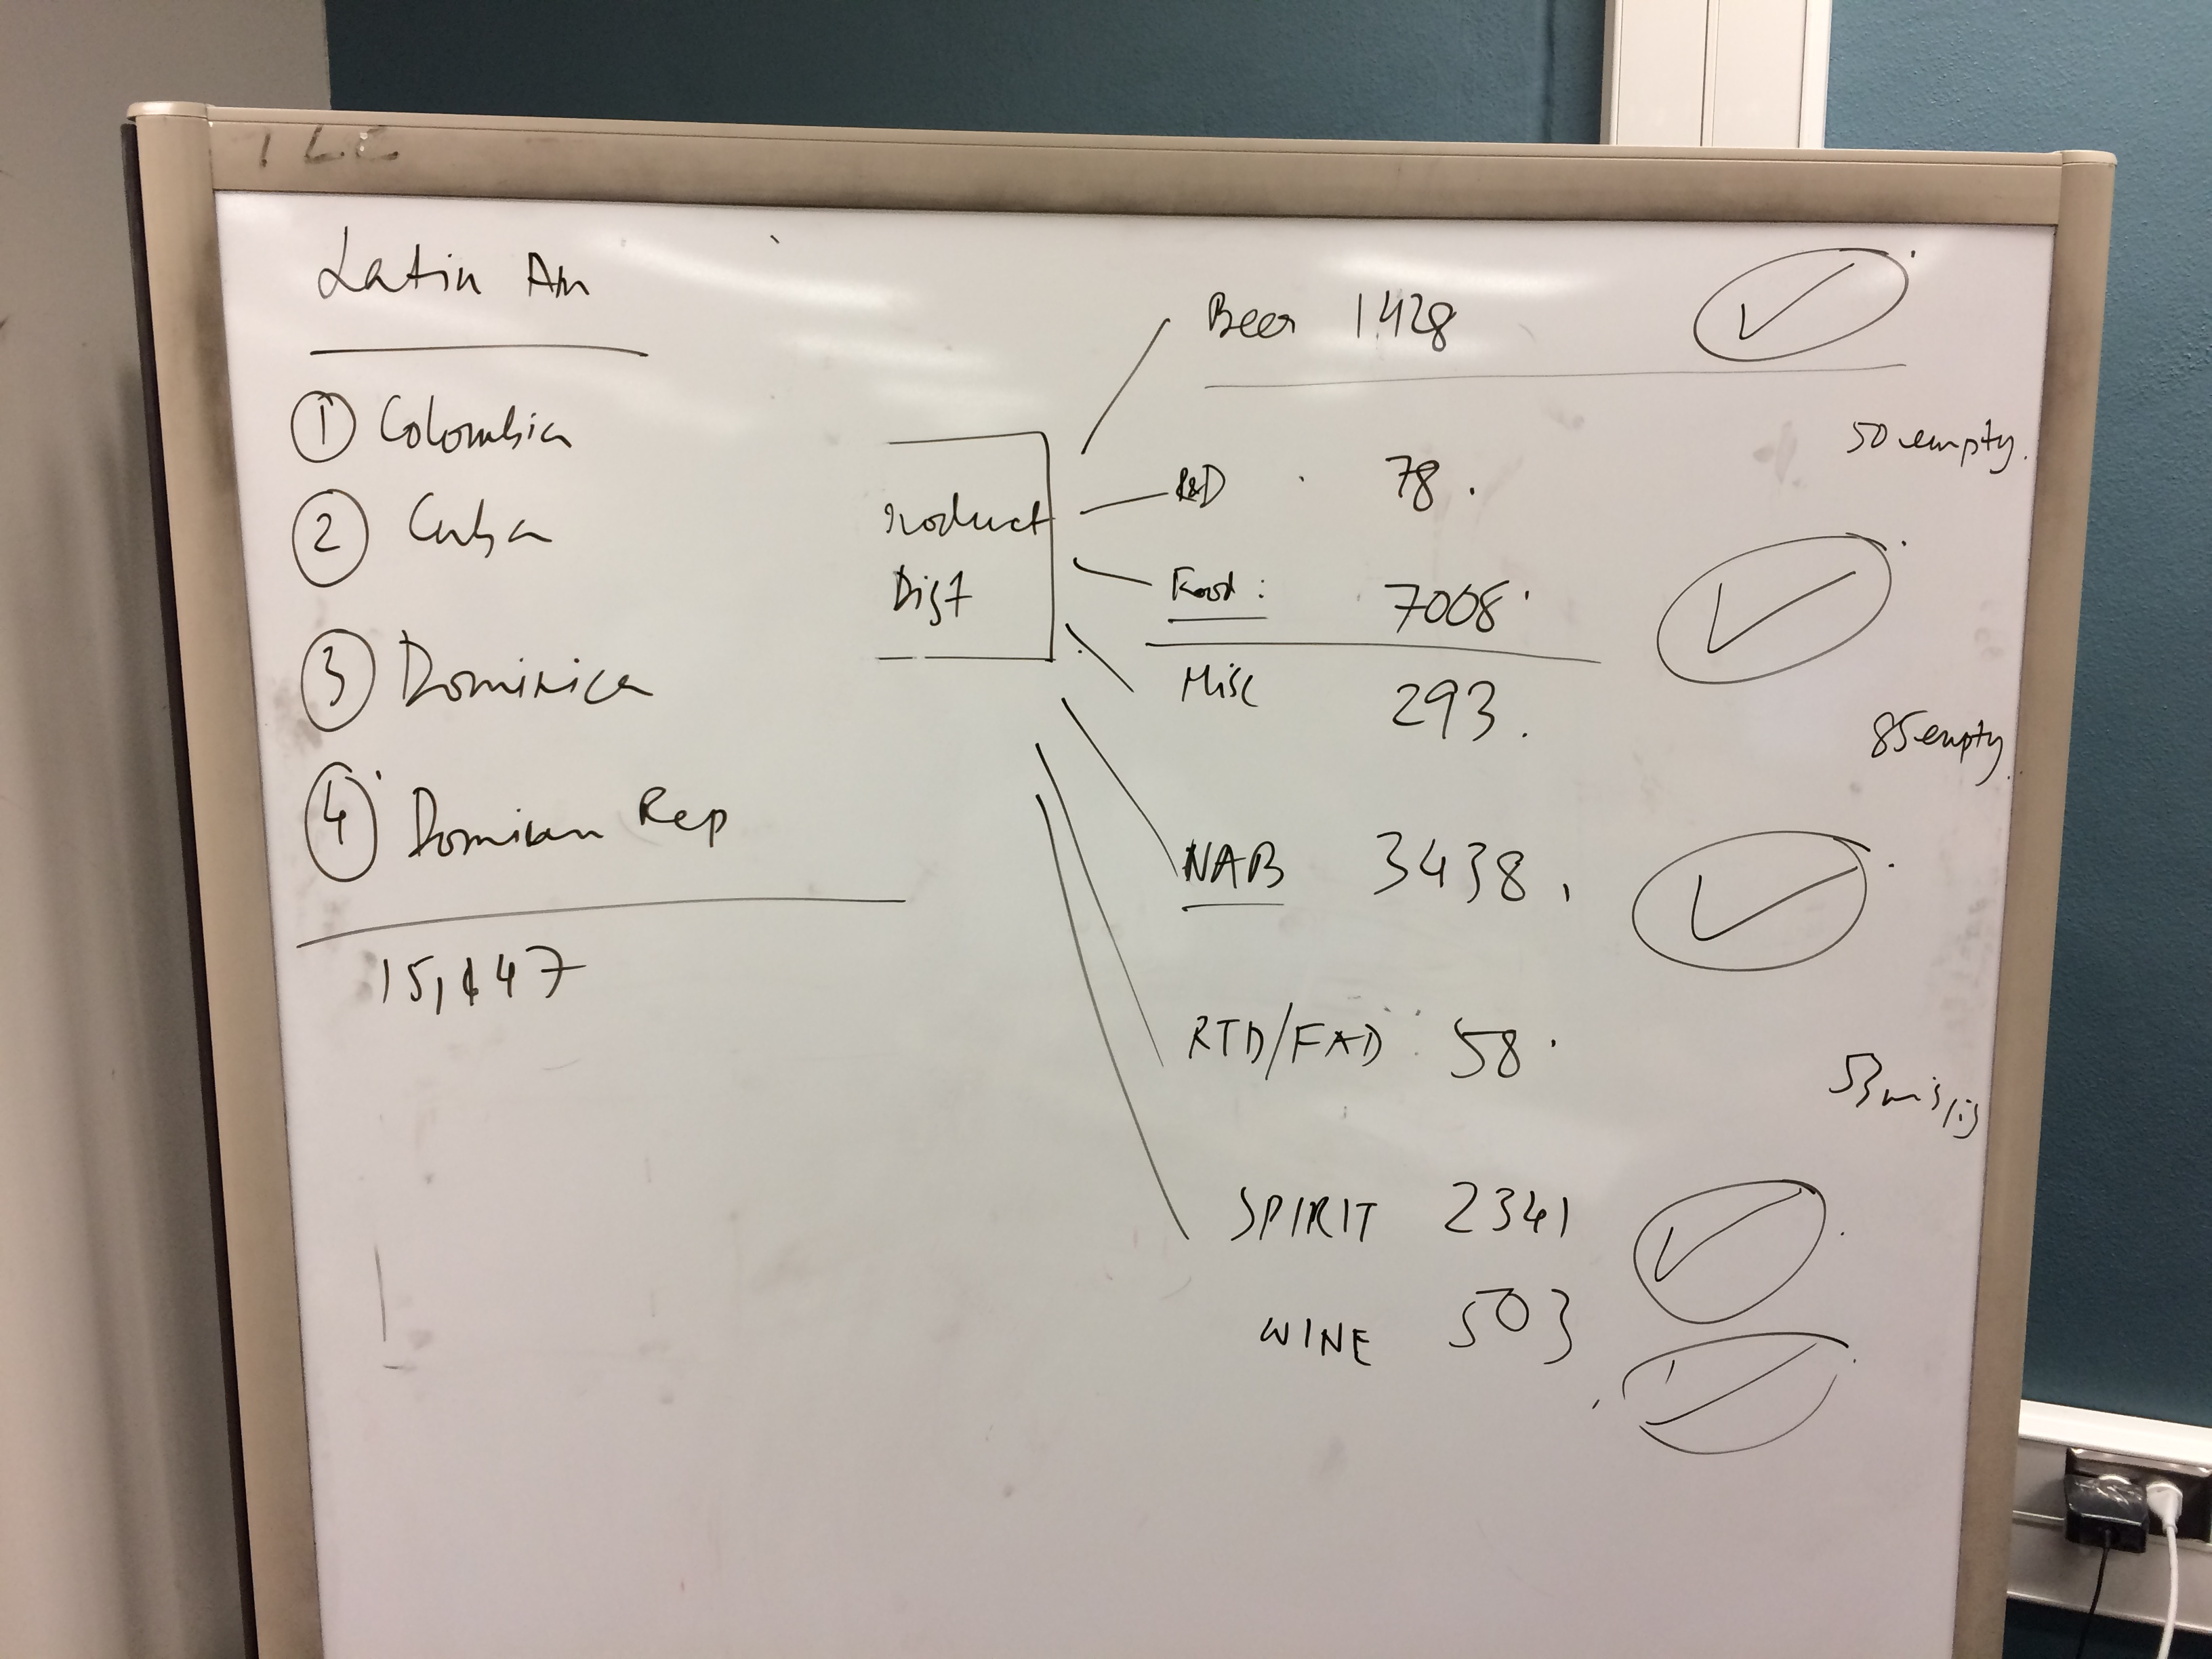 TLC
Latin Am
① Colombia
② Cuba
③ Dominica
④ Domican Rep
15,147
Product
Dist
Beer 1428
50 empty.
R&D 78.
Food: 7008
Misc 293.
85 empty
NAB 3438
RTD/FAD 58
SPIRIT 2341
WINE 503